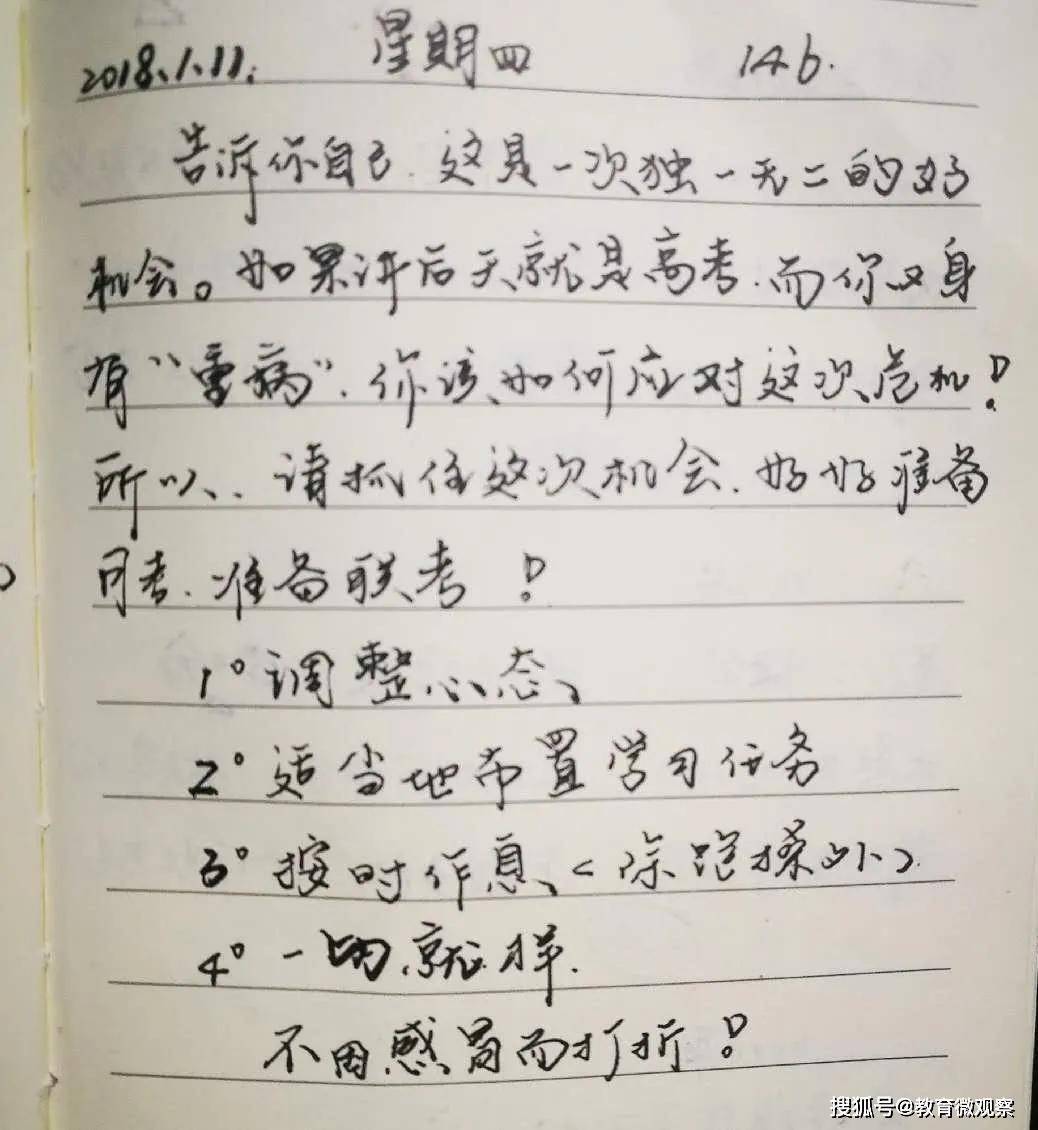 2018.1.11. 星期四 146.
告诉你自己.这是一次独一无二的好
机会。如果说后天就是高考.而你又身
有“重病”.你该如何应对这次危机!
所以..请抓住这次机会.好好准备
月考.准备联考!
1°调整心态、
2°适当地布置学习任务
3°按时作息、(除跑操以外)
4°一切.就.样.
不因感冒而打折!
搜狐号@教育微观察